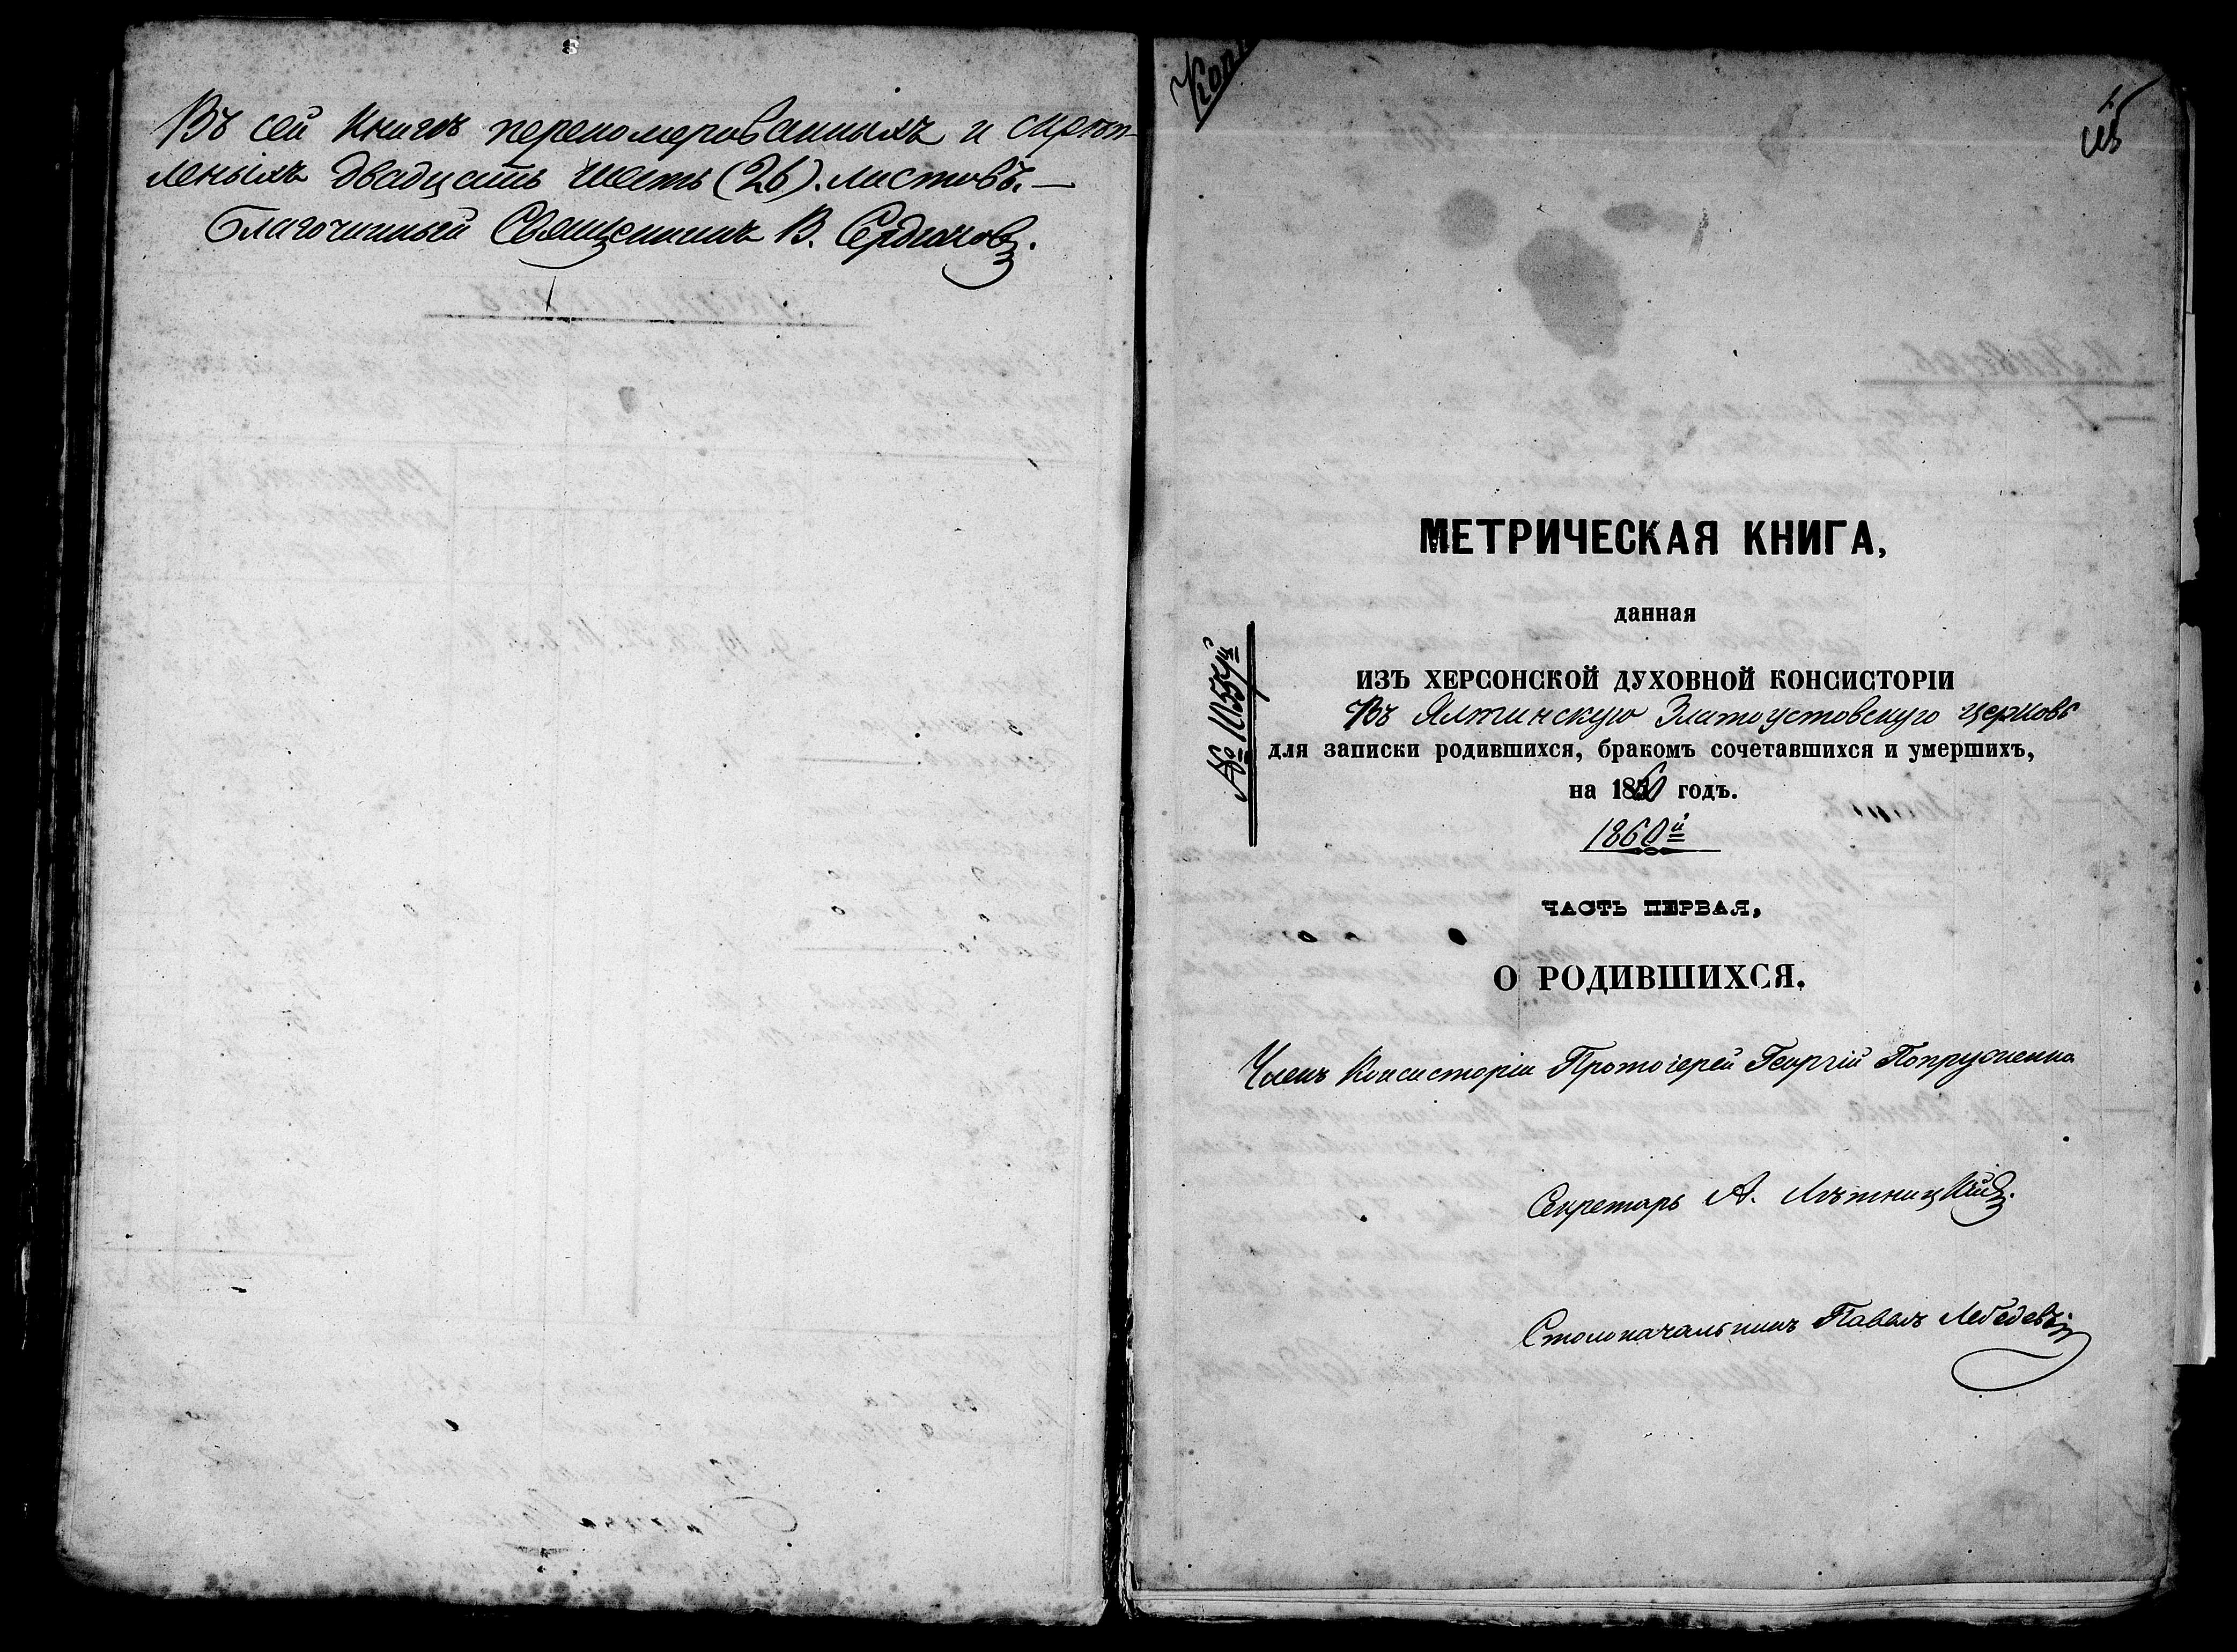 Въ сей книгѣ переномерованныхъ и скрѣп-
леныхъ двадцать шесть (26). листовъ. —
Благочинный Священникъ В. Сердюковъ.
Копі
МЕТРИЧЕСКАЯ КНИГА,
данная
ИЗЪ ХЕРСОНСКОЙ ДУХОВНОЙ КОНСИСТОРІИ
Въ Ялтинскую Златоустовскую церковь
для записки родившихся, бракомъ сочетавшихся и умершихъ,
на 1860 годъ.
1860й
ЧАСТЬ ПЕРВАЯ,
О РОДИВШИХСЯ.
Членъ Консисторіи Протоіерей Георгій Попруженко
Секретарь А. Лѣтницкій.
Столоначальникъ Павелъ Лебедевъ